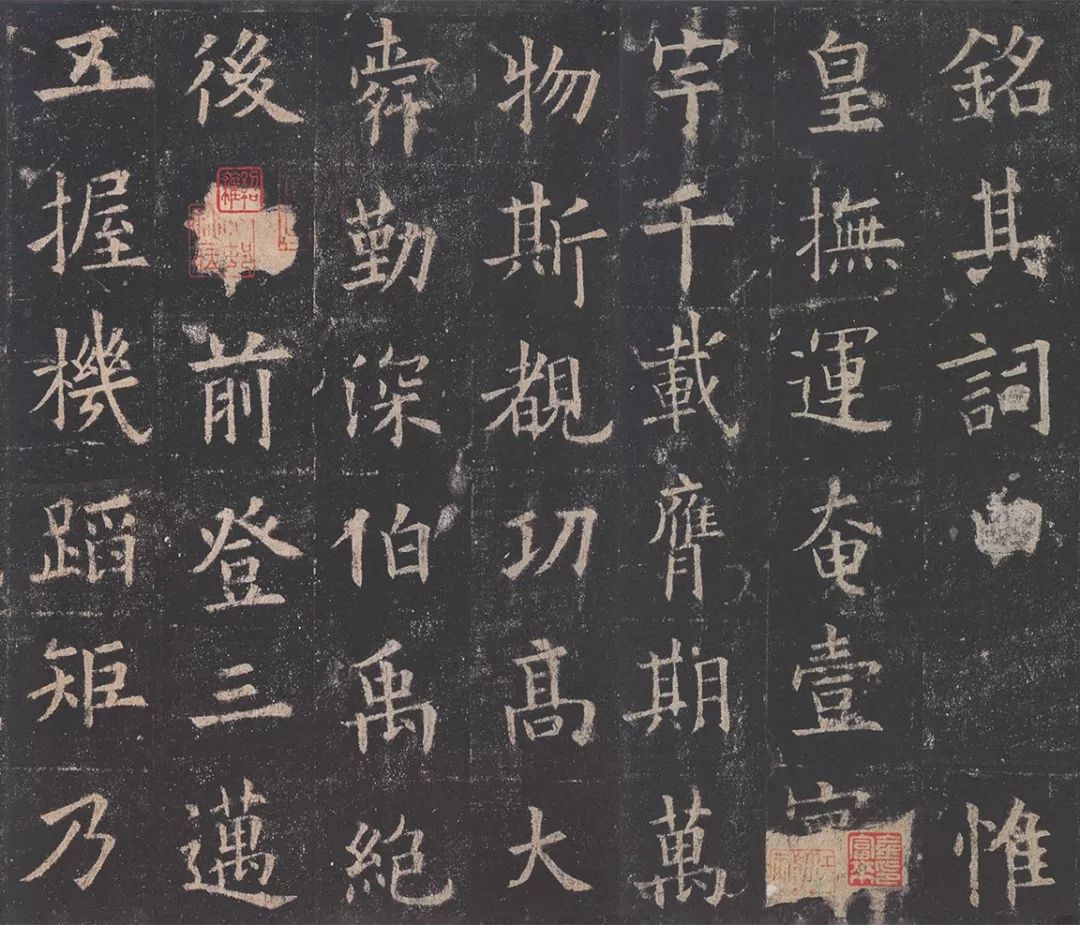 銘其詞惟
皇撫運奄壹
宇千載膺期萬
物斯覩功髙大
舜勤深伯禹絶
後前登三邁
五握機蹈矩乃